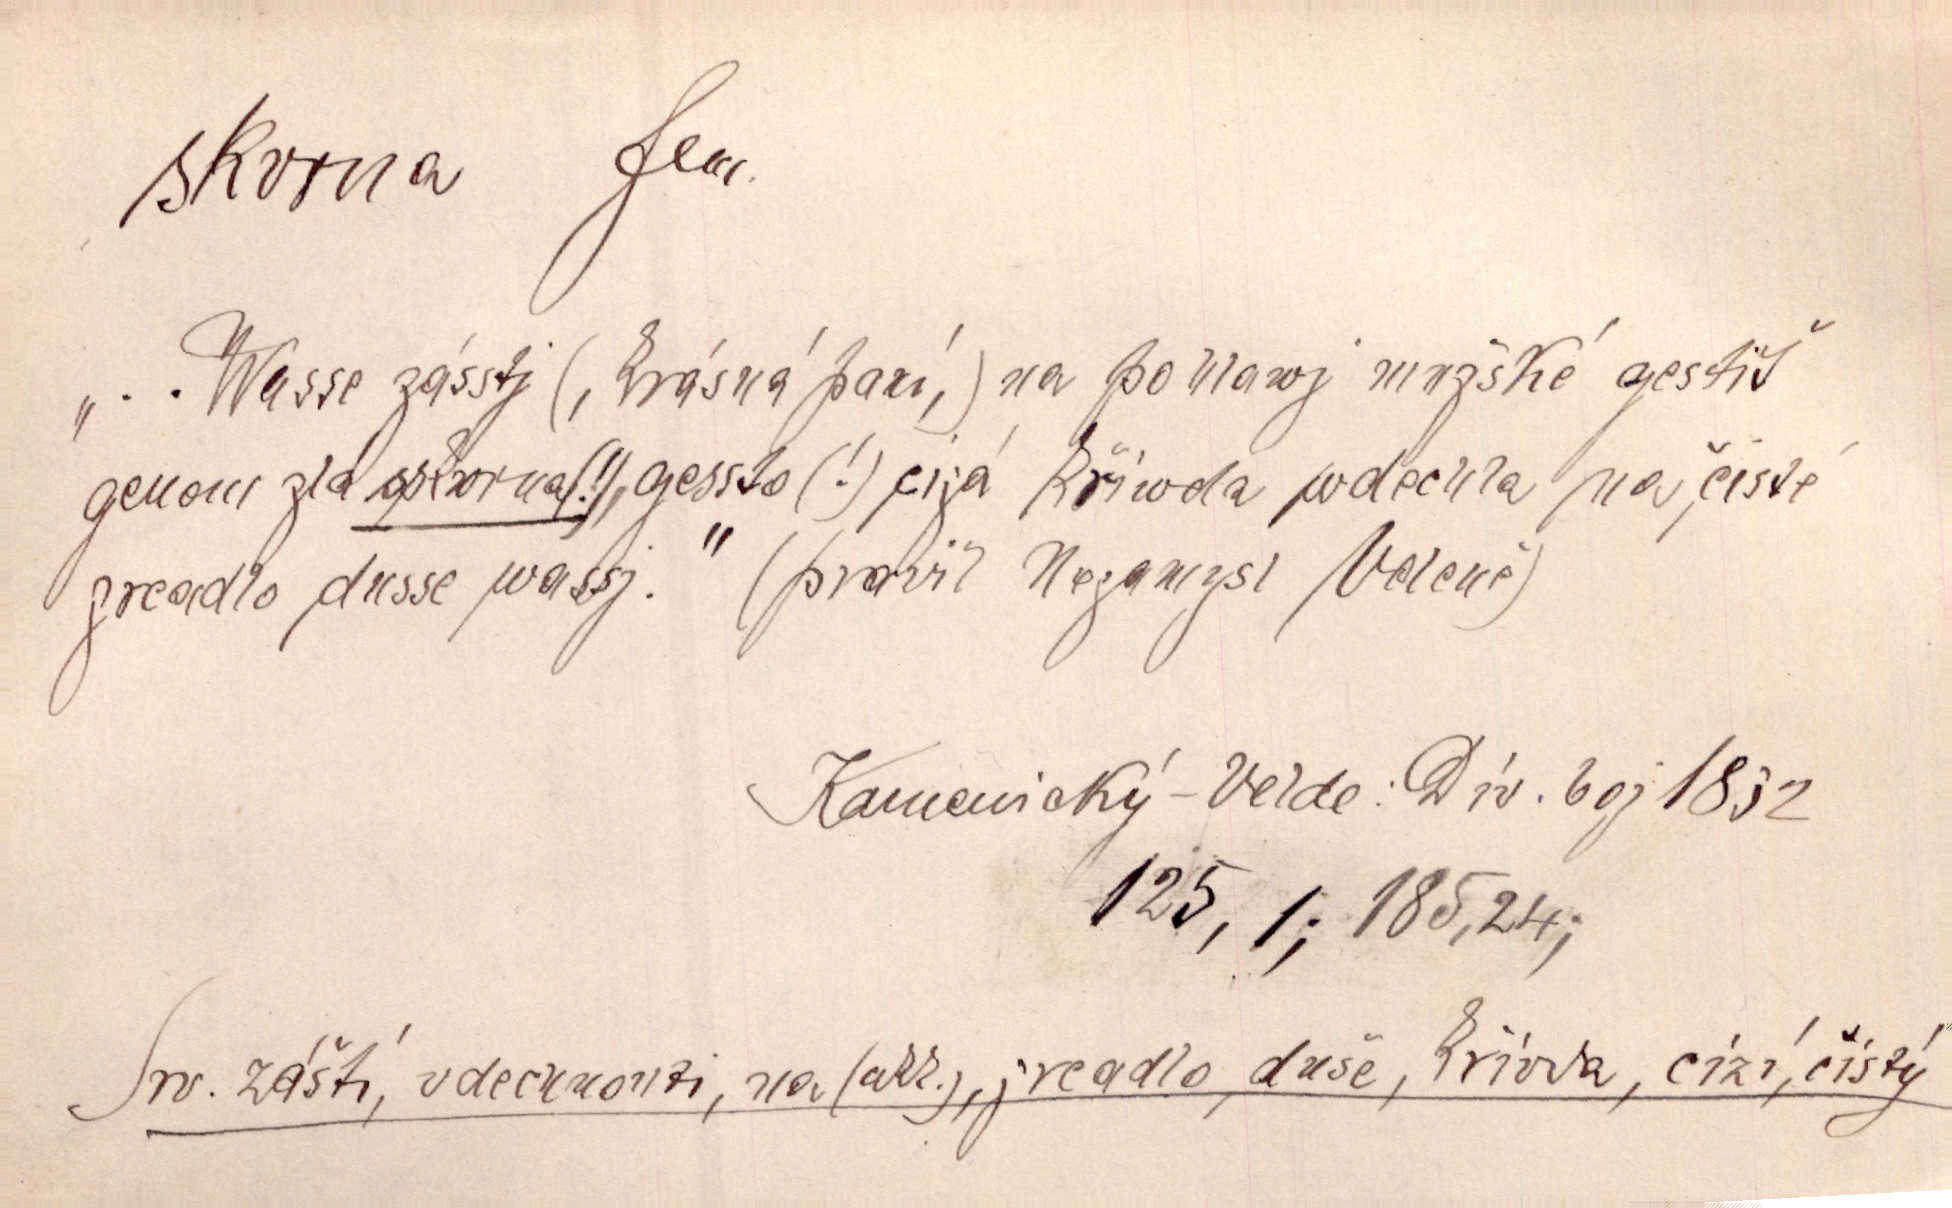 skvrna fem.
„.. Wasse zásstj (, krásná panj,) na pohlawj mužské gestiť
genom zlá skwrna(!), gessto (!) cyzá křiwda wdechla na čisté
zrcadlo dusse wassj." (pravil Nezamysl Veleně)
Kamenický-Velde: Dív. boj 1832
125, 1; 185,24;
Srv. zášť, vdechnouti, na (akk.), zrcadlo, duše, křivda, cizí, čistý